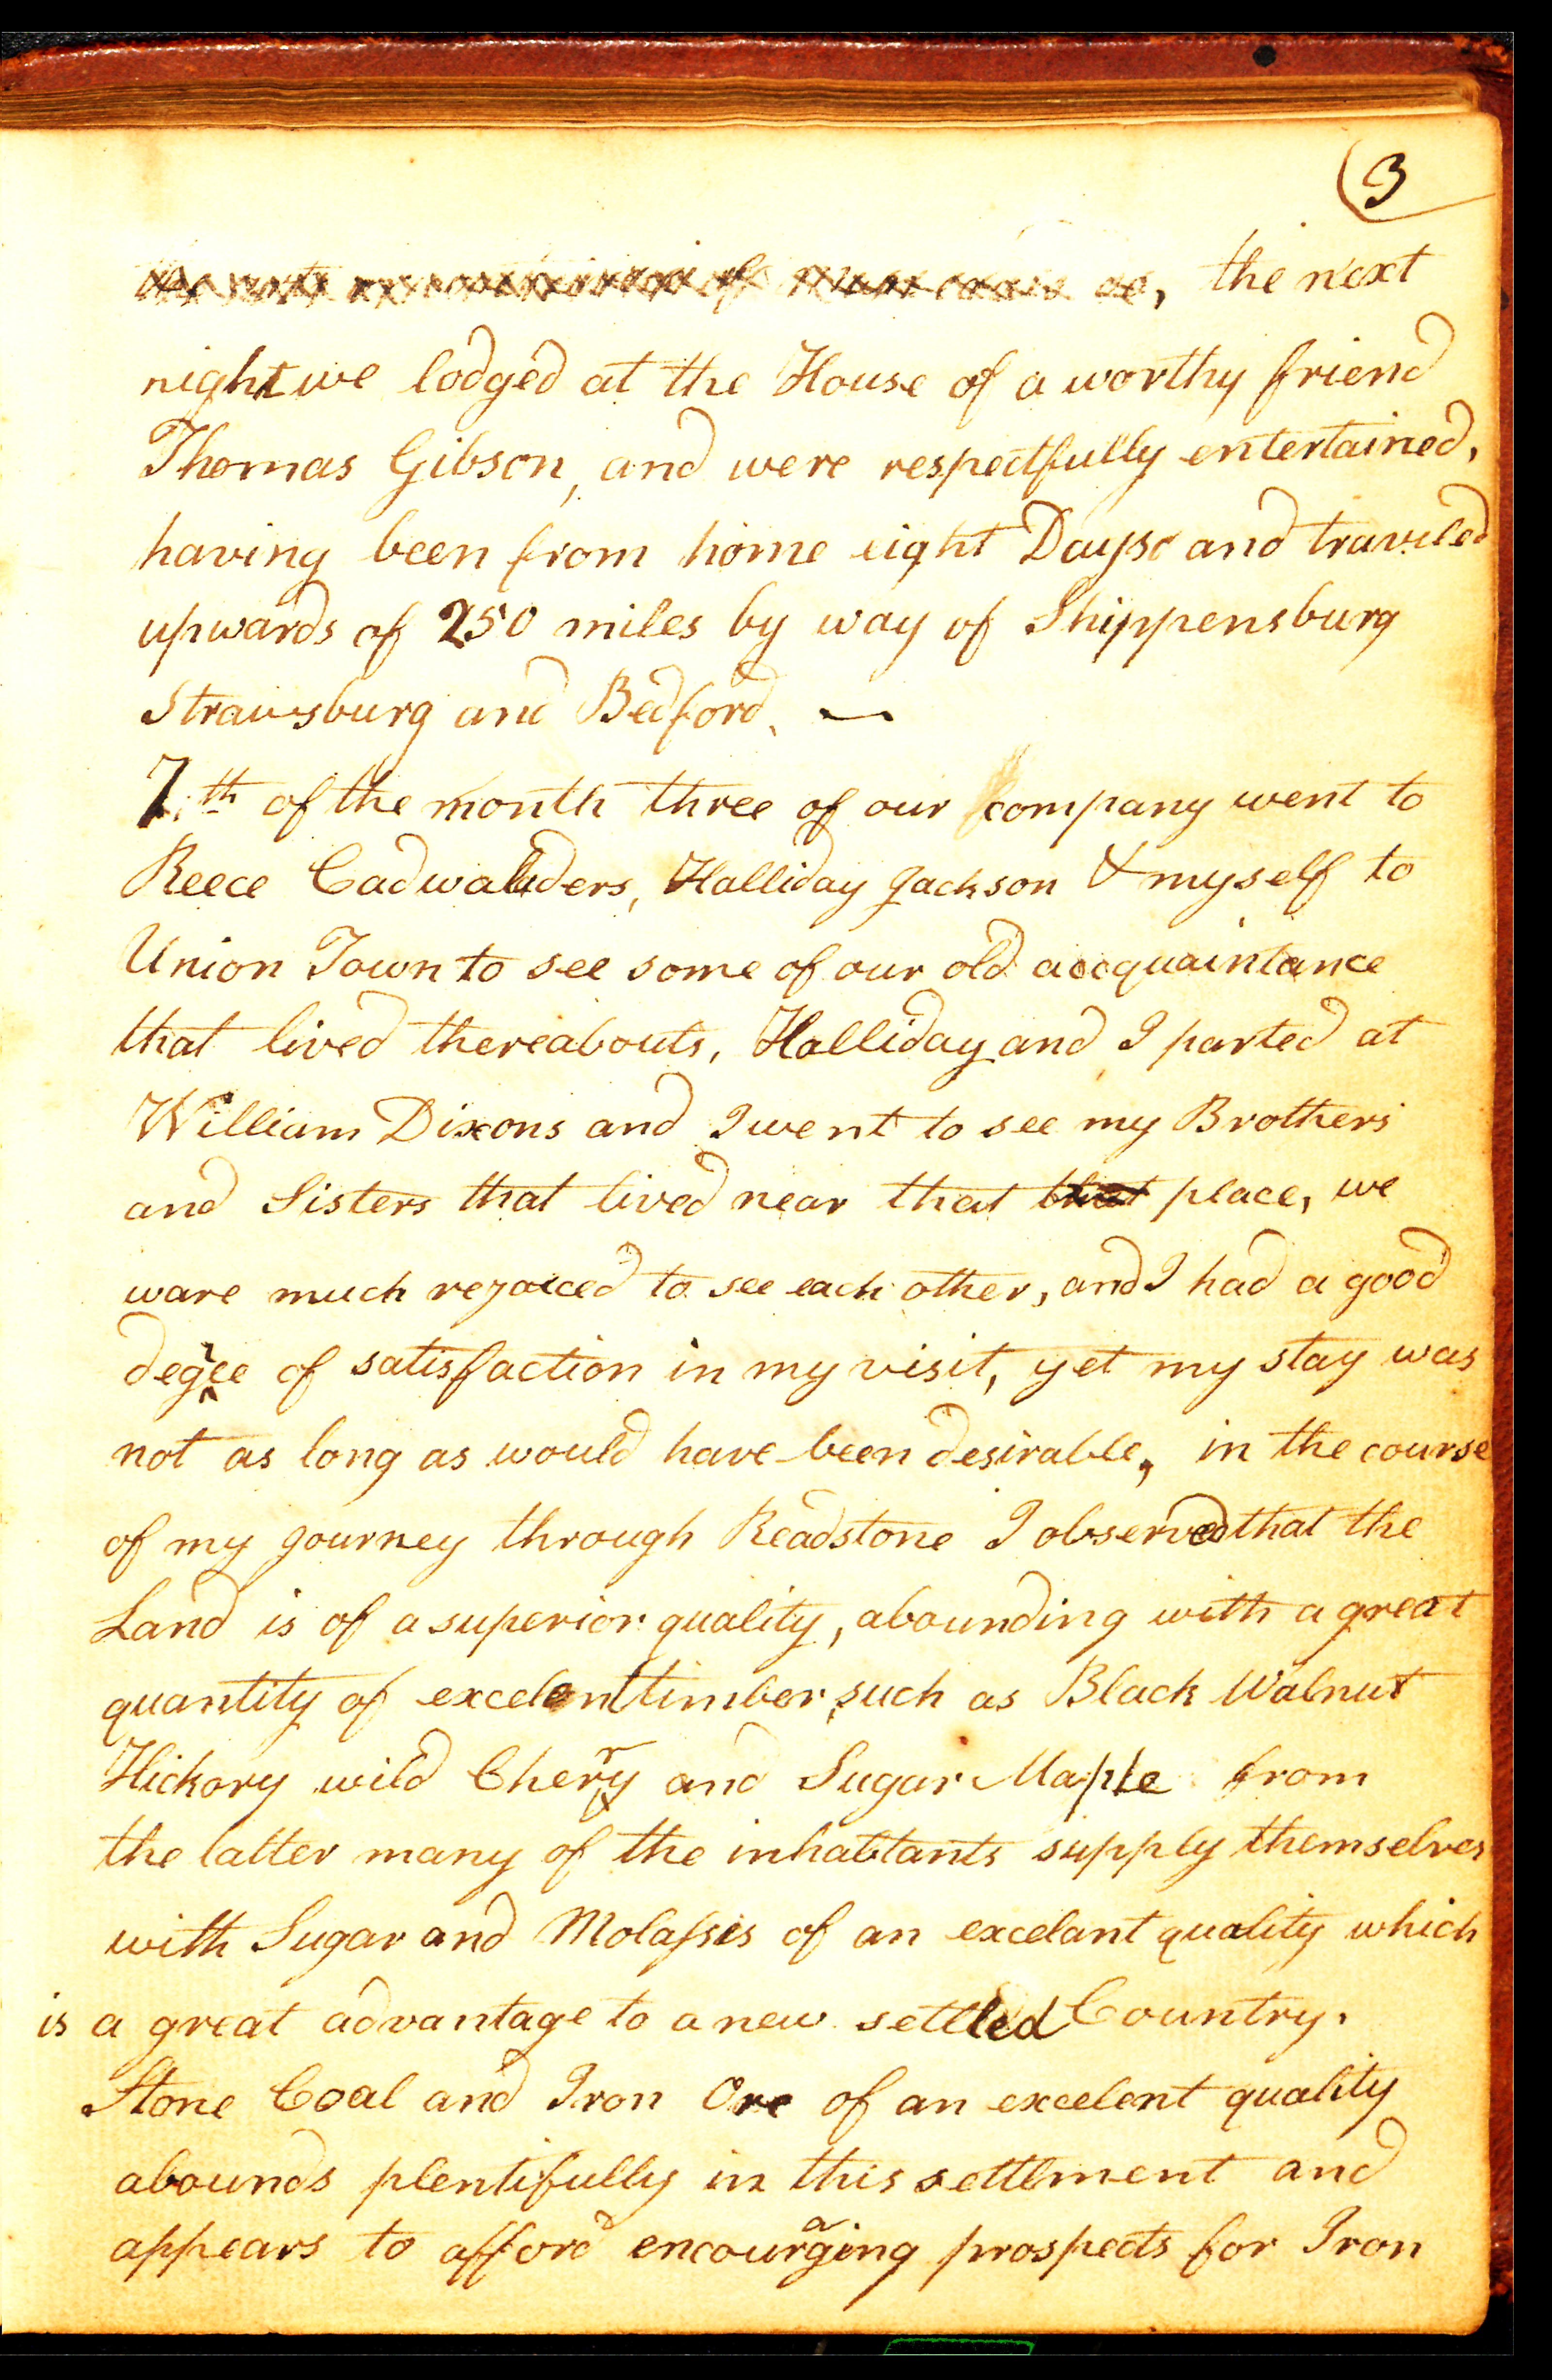 3
the next
night we lodged at the House of a worthy friend
Thomas Gibson, and were respectfully entertained,
having been from home eight Days and traveled
upwards of 250 miles by way of Shippensburg
Strawsburg and Bedford. —
7th of the month three of our company went to
Reece Cadwaladers, Halliday Jackson & myself to
Union Town to see some of our old accquaintance
that lived thereabouts, Halliday and I parted at
William Dixons and I went to see my Brothers
and Sisters that lived near that place, we
ware much rejoiced to see each other, and I had a good
degree of satisfaction in my visit, yet my stay was
not as long as would have been desirable, in the course
of my journey through Readstone I observed that the
Land is of a superior quality, abounding with a great
quantity of excelent timber, such as Black Walnut
Hickory wild Cherry and Sugar Maple from
the latter many of the inhabtants supply themselves
with Sugar and Molassis of an excelant quality which
is a great advantage to a new settled Country.
Stone Coal and Iron Ore of an excelent quality
abounds plentifully in this settlment and
appears to afford encouraging prospects for Iron